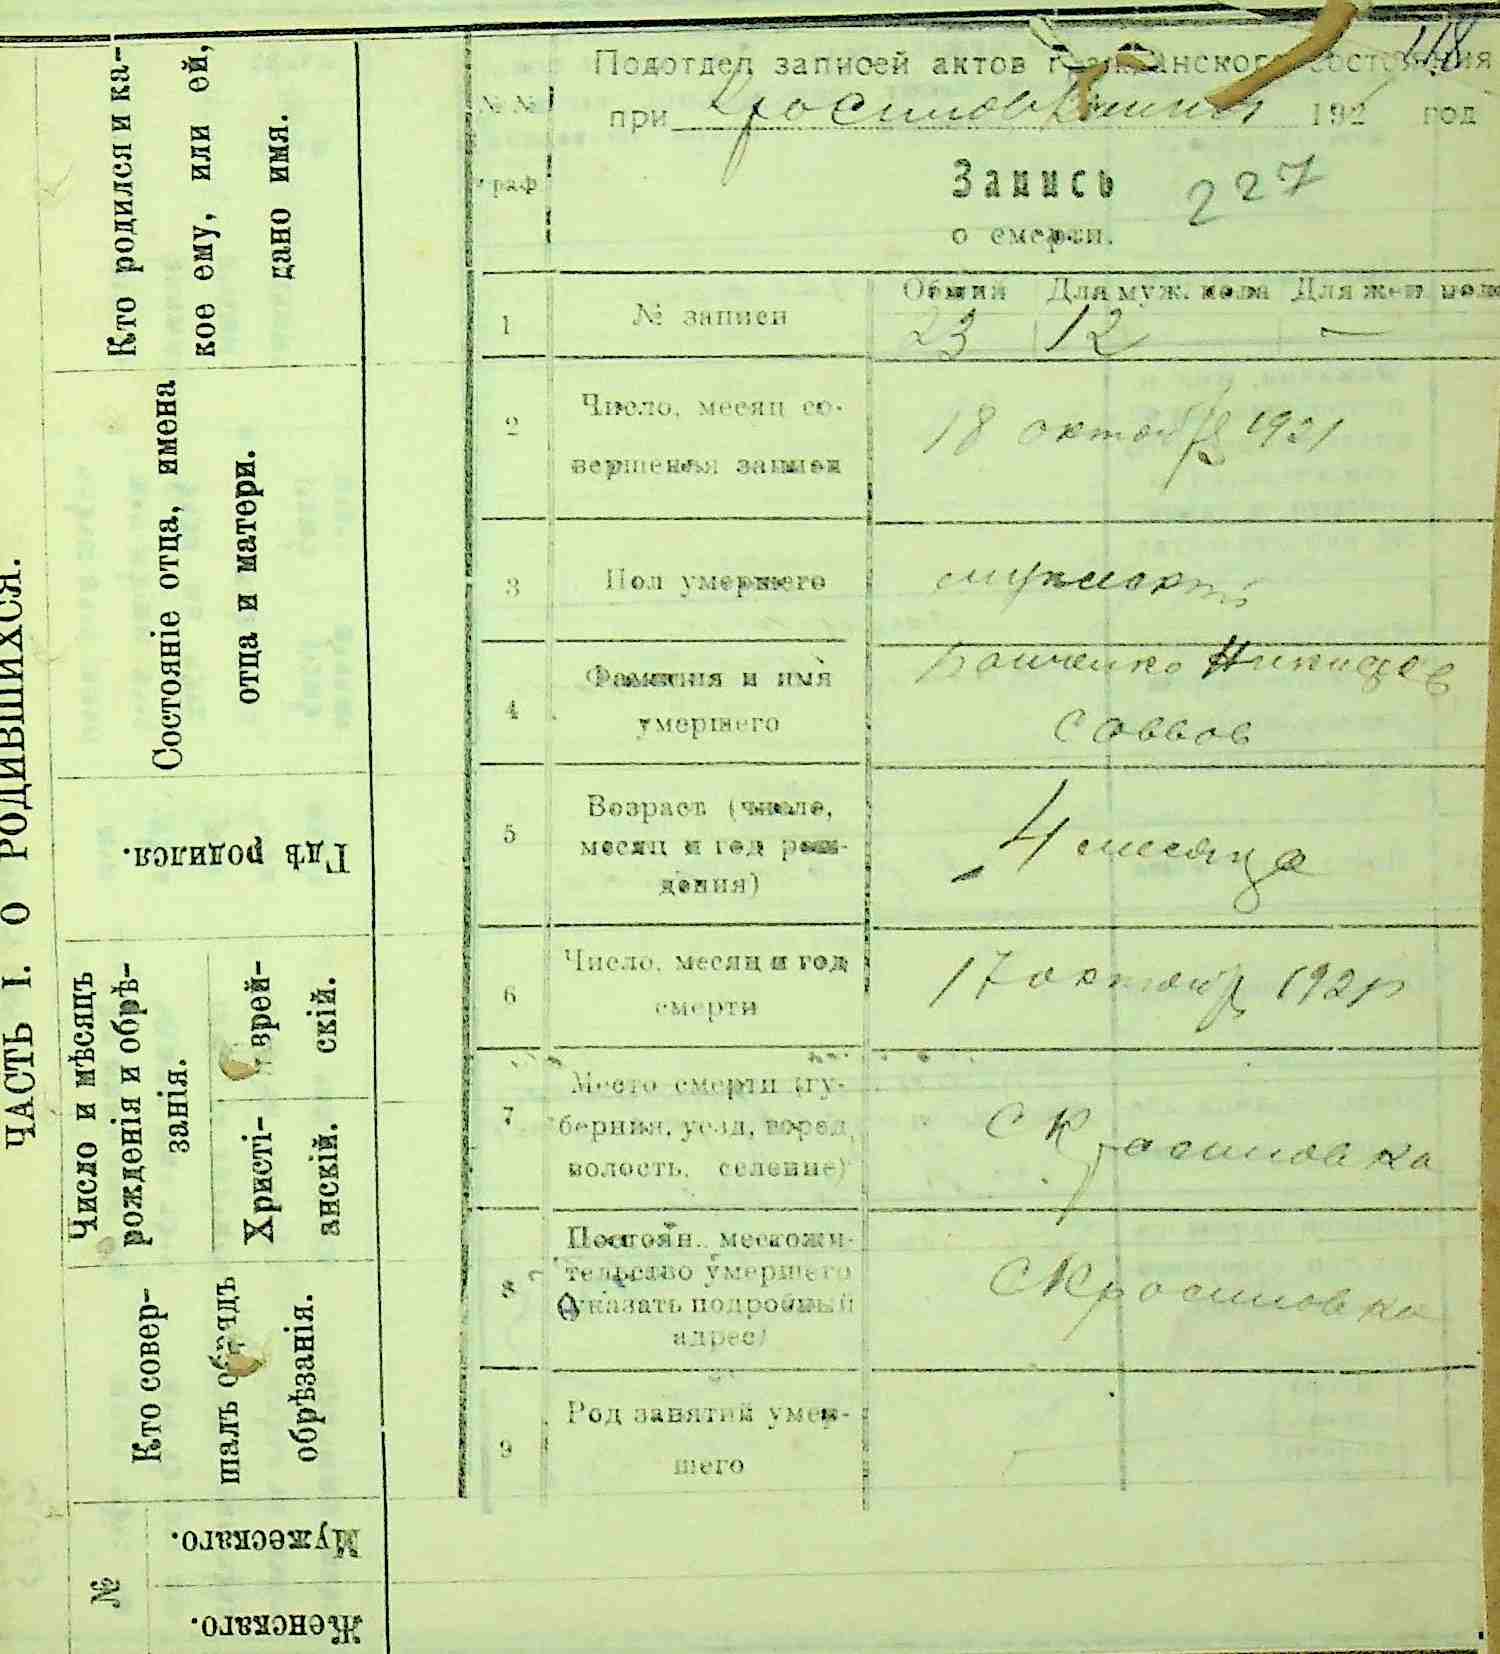 ЧАСТЬ I. О РОДИВШИХСЯ.
Кто родился и ка-
кое ему, или ей,
дано имя.
Состоянiе отца, имена
отца и матери.
Гдѣ родился.
Число и мѣсяцъ
рожденiя и обрѣ-
занiя.
Еврей-
скiй.
Христi-
анскiй.
Кто совер-
шалъ обрядъ
обрѣзанiя.
№
Мужескаго.
Женскаго.
118
Подотдел записей актов гражданского состояния
при 192 год
№№
граф
Запись 227
о смерти.
Общий Для муж. пола Для жен. пола
1 № записи 23 12 —
2 Число, месяц со-
вершенья записи
18 октября 1921
3 Пол умершего мужской
4 Фамилия и имя
умершего
Саввов
5 Возраст (число,
месяц и год рож-
дения)
4 месяца
6 Число, месяц и год
смерти
17 октября 1921 г
7 Место смерти (гу-
берния, уезд, город,
волость, селение)
С Красиловка
8 Постоян. местожи-
тельство умершего
(указать подробный
адрес)
С Красиловка
9 Род занятий умер-
шего
—